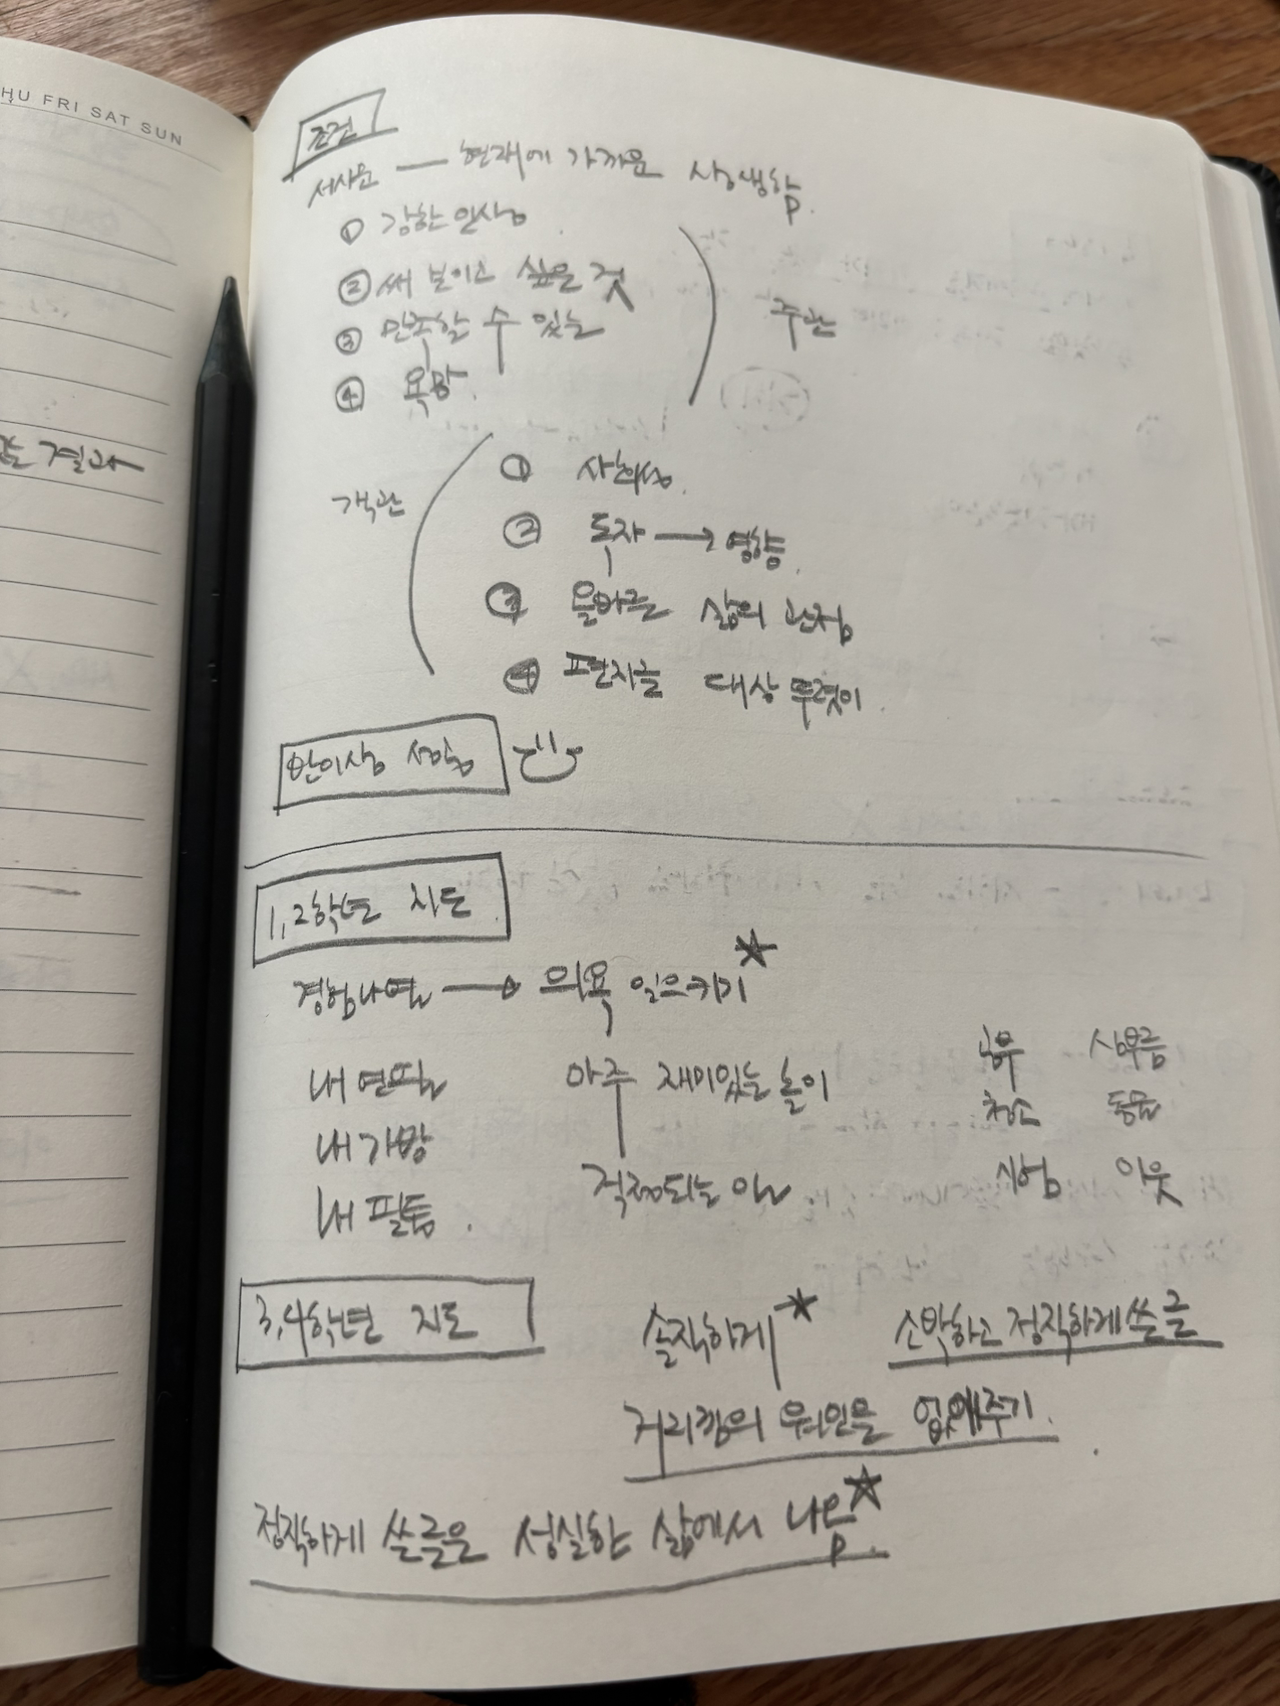 HU FRI SAT SUN
결과
조건
서사문 — 현재에 가까운 상생함.
① 강한 인상
② 써 보이고 싶은 것
③ 만족할 수 있는
④ 욕망.
주관
객관
① 사회성.
② 독자 → 영향.
③ 올바른 삶의 관점
④ 편지글 대상 뚜렷이.
1,2학년 지도
경험나열 → 의욕 일으키기 ☆
내 연필
내 가방
내 필통.
아주 재미있는 놀이
걱정되는 일.
공부 심부름
청소 동물
시험 이웃
3,4학년 지도
솔직하게 ☆
소박하고 정직하게 쓴 글
거리낌의 원인을 없애주기.
정직하게 쓴 글은 성실한 삶에서 나옴 ☆